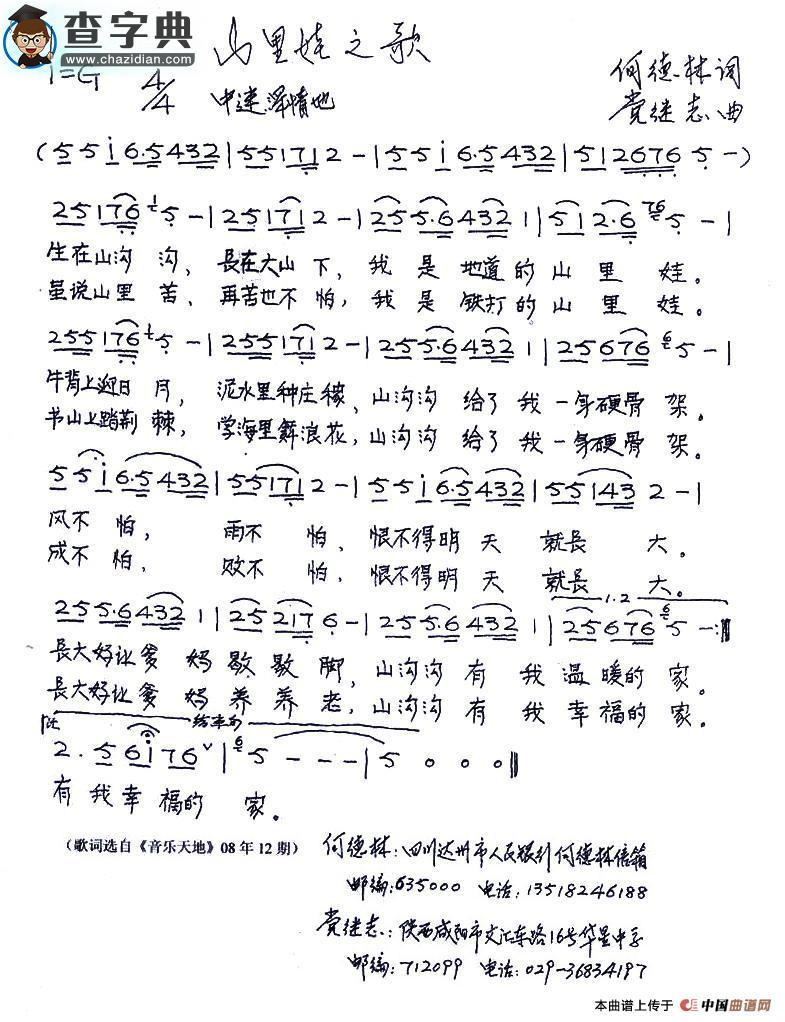 查字典
www.chazidian.com
山里娃之歌
1=G 4/4 中速 深情地
何德林词
党继志曲
(5 5 i 6·5 4 3 2 | 5 5 1 7 1 2 - | 5 5 i 6·5 4 3 2 | 5 1 2 6 7 6 5 - )
2 5 1 7 6 1 5 - | 2 5 1 7 1 2 - | 2 5 5·6 4 3 2 1 | 5 1 2·6 7 6 5 - |
生在山沟 沟，長在大山 下，我 是 地道的 山 里 娃。
虽说山里 苦，再苦也不 怕，我 是 铁打的 山 里 娃。
2 5 5 1 7 6 1 5 - | 2 5 5 1 7 1 2 - | 2 5 5·6 4 3 2 1 | 2 5 6 7 6 6 5 - |
牛背上迎日 月，泥水里种庄稼，山沟沟 给了 我 一身硬骨 架。
书山上踏荆 棘，学海里舞浪花，山沟沟 给了 我 一身硬骨 架。
5 5 i 6·5 4 3 2 | 5 5 1 7 1 2 - | 5 5 i 6·5 4 3 2 | 5 5 1 4 3 2 - |
风不 怕，雨不 怕，恨不得明 天 就長 大。
成不 怕，败不 怕，恨不得明 天 就長 大。
1.2
2 5 5·6 4 3 2 1 | 2 5 2 1 7 6 - | 2 5 5·6 4 3 2 1 | 2 5 6 7 6 6 5 - :||
長大好让爹 妈 歇 歇 脚，山沟沟 有 我 温暖的 家。
長大好让爹 妈 养 养 老，山沟沟 有 我 幸福的 家。
结束句
2· 5 6 i 7 6 ∨ | 6 5 - - - | 5 0 0 0 ||
有 我 幸 福的 家。
（歌词选自《音乐天地》08 年 12 期）
何德林：四川达州市人民银行何德林信箱
邮编：635000 电话：13518246188
党继志：陕西咸阳市文汇东路16号华星中学
邮编：712099 电话：029-36834197
本曲谱上传于 中国曲谱网